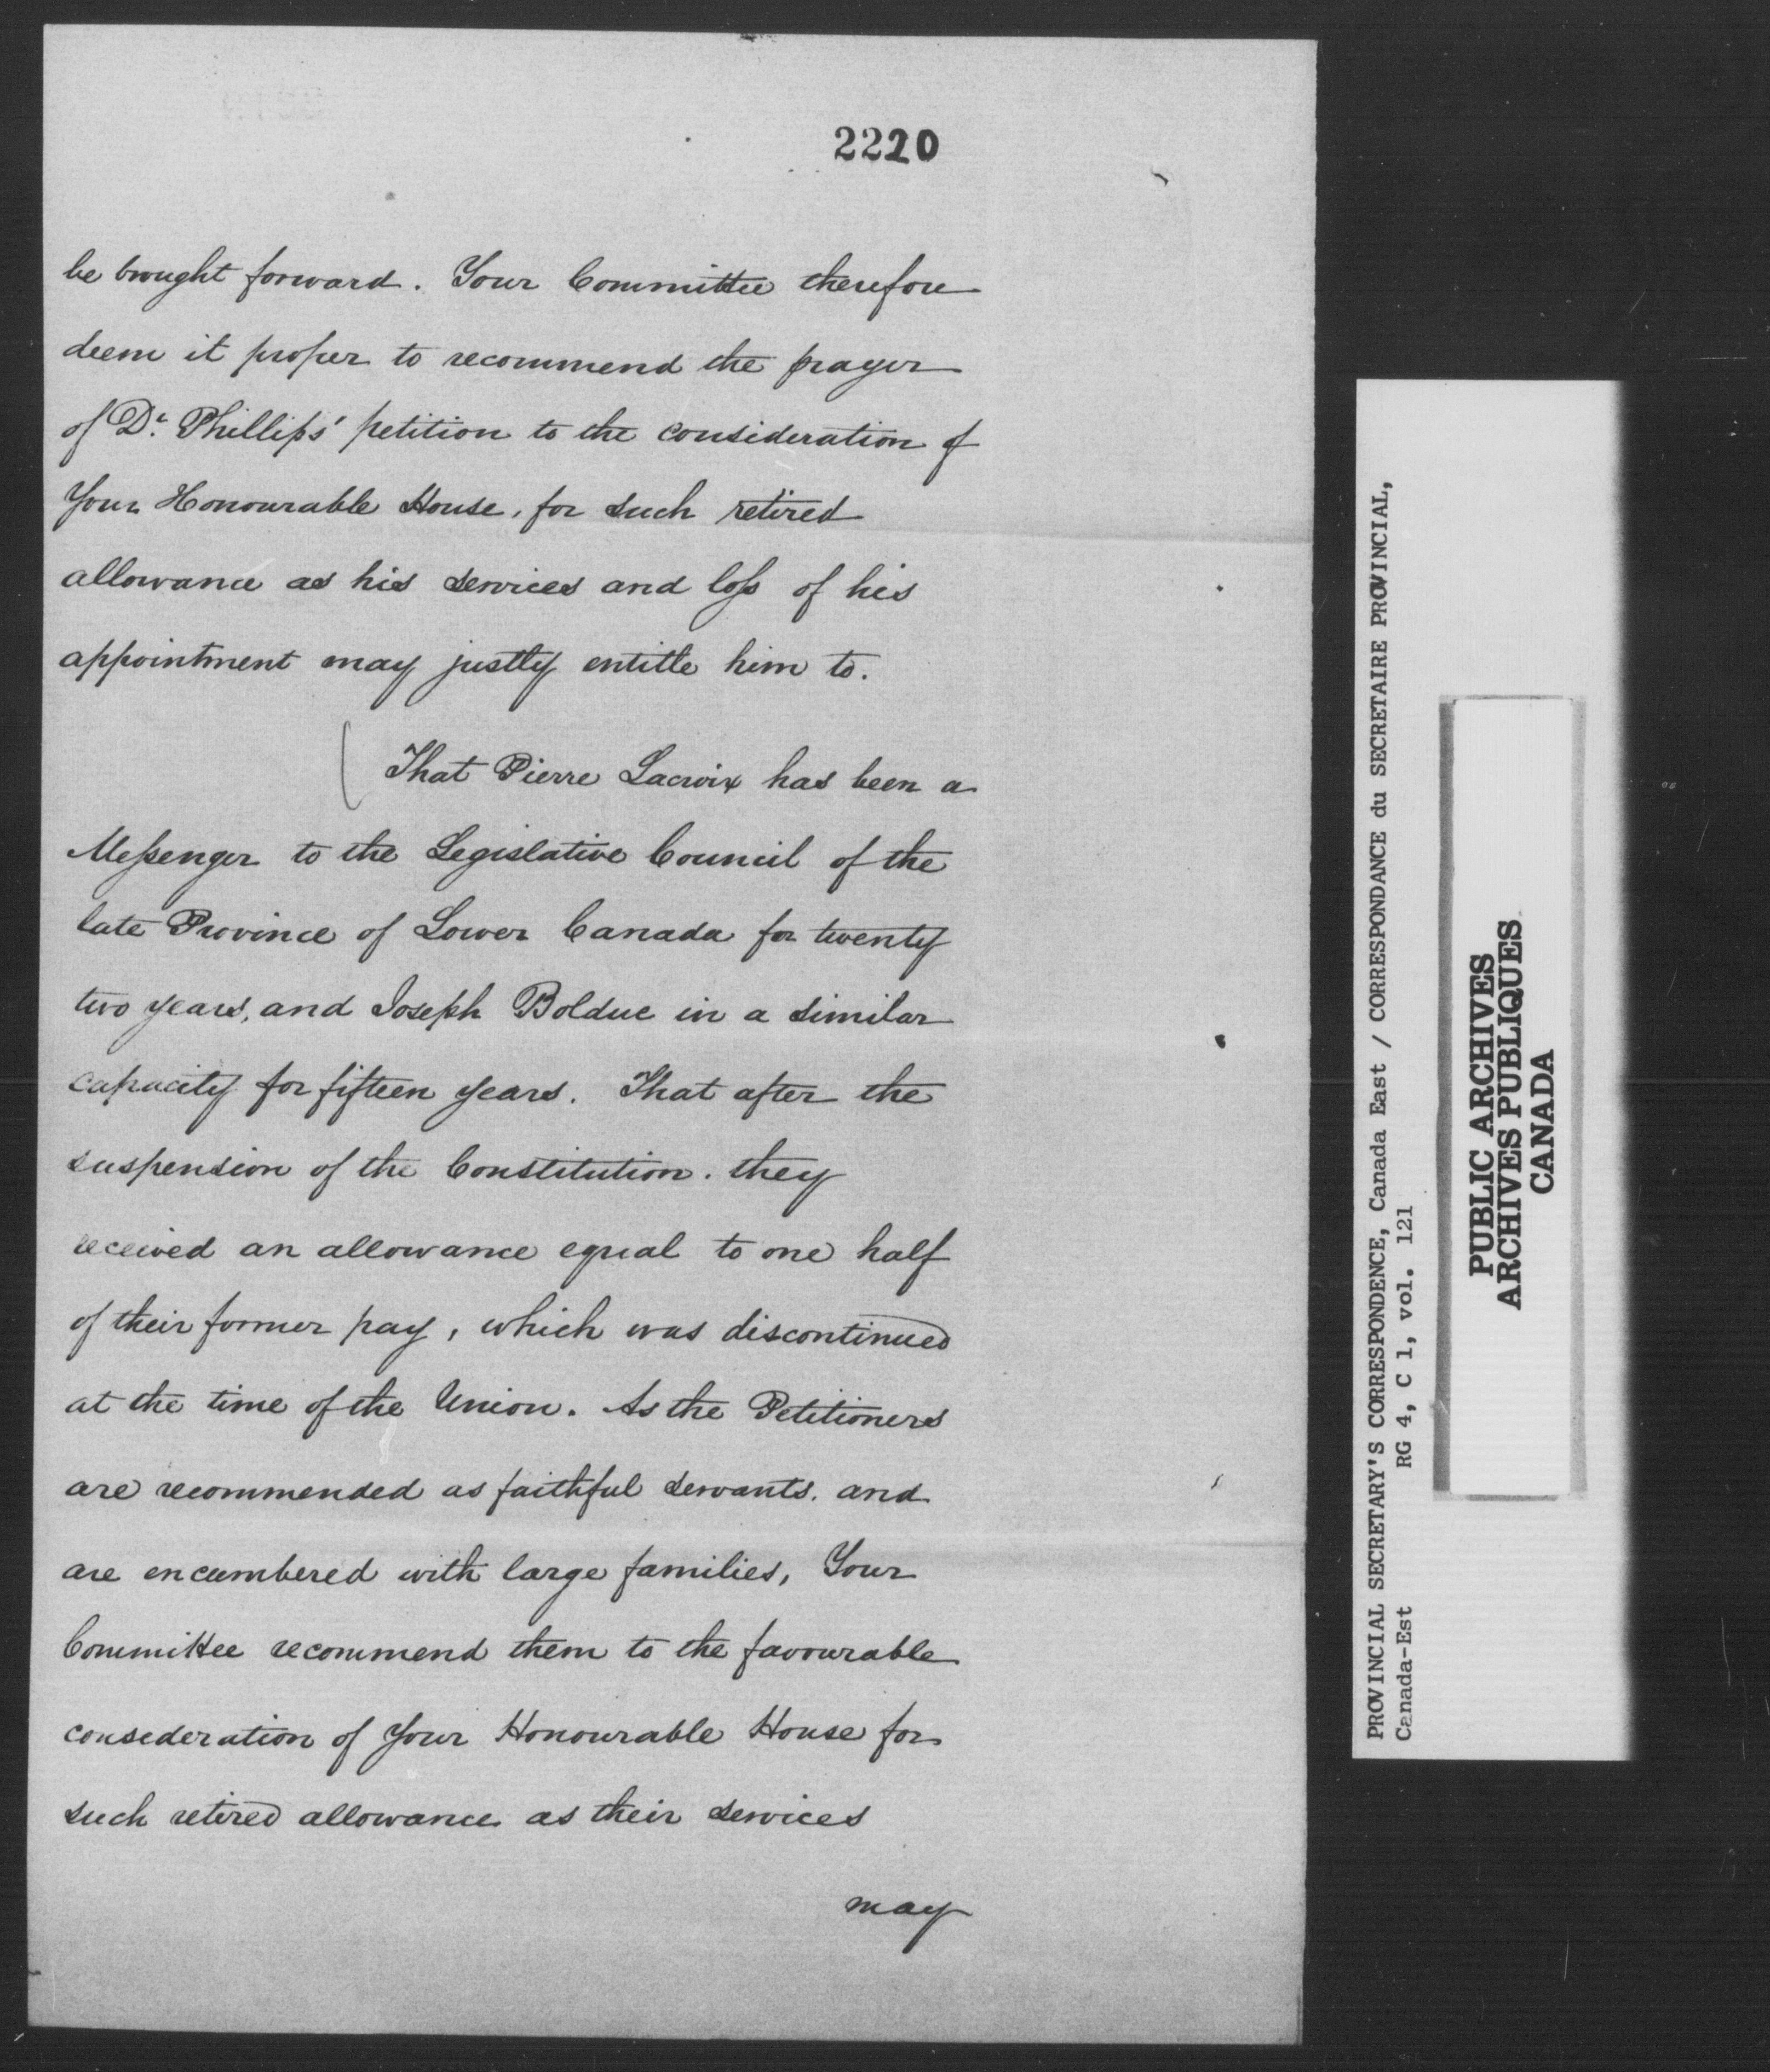 2220
be brought forward. Your Committee therefore
deem it proper to recommend the prayer
of Dr. Phillips' petition to the consideration of
Your Honourable House, for such retired
allowance as his services and loſs of his
appointment may justly entitle him to.
( That Pierre Lacroix has been a
Meſsenger to the Legislative Council of the
late Province of Lower Canada for twenty
two years, and Joseph Bolduc in a similar
capacity for fifteen years. That after the
suspension of the Constitution. they
received an allowance equal to one half
of their former pay, which was discontinued
at the time of the Union. As the Petitioners
are recommended as faithful servants. and
are encumbered with large families, Your
Committee recommend them to the favourable
consideration of Your Honourable House for
such retired allowance as their services
may
PROVINCIAL SECRETARY'S CORRESPONDENCE, Canada East / CORRESPONDANCE du SECRETAIRE PROVINCIAL,
Canada-Est RG 4, C 1, vol. 121
PUBLIC ARCHIVES
ARCHIVES PUBLIQUES
CANADA